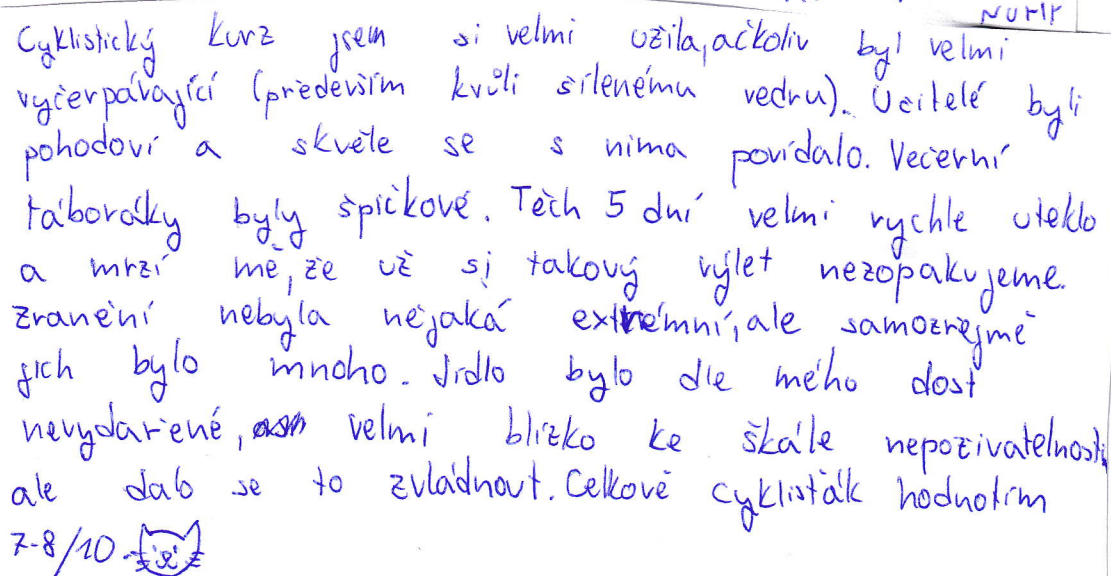 Cyklistický kurz jsem si velmi užila, ačkoliv byl velmi
vyčerpávající (především kvůli šílenému vedru). Učitelé byli
pohodoví a skvěle se s nima povídalo. Večerní
táboráky byly špičkové. Těch 5 dní velmi rychle uteklo
a mrzí mě, že už si takový výlet nezopakujeme.
Zranění nebyla nějaká extrémní, ale samozřejmě
jich bylo mnoho. Jídlo bylo dle mého dost
nevydařené, velmi blízko ke škále nepoživatelnosti,
ale dalo se to zvládnout. Celkově cyklisťák hodnotím
7-8/10.